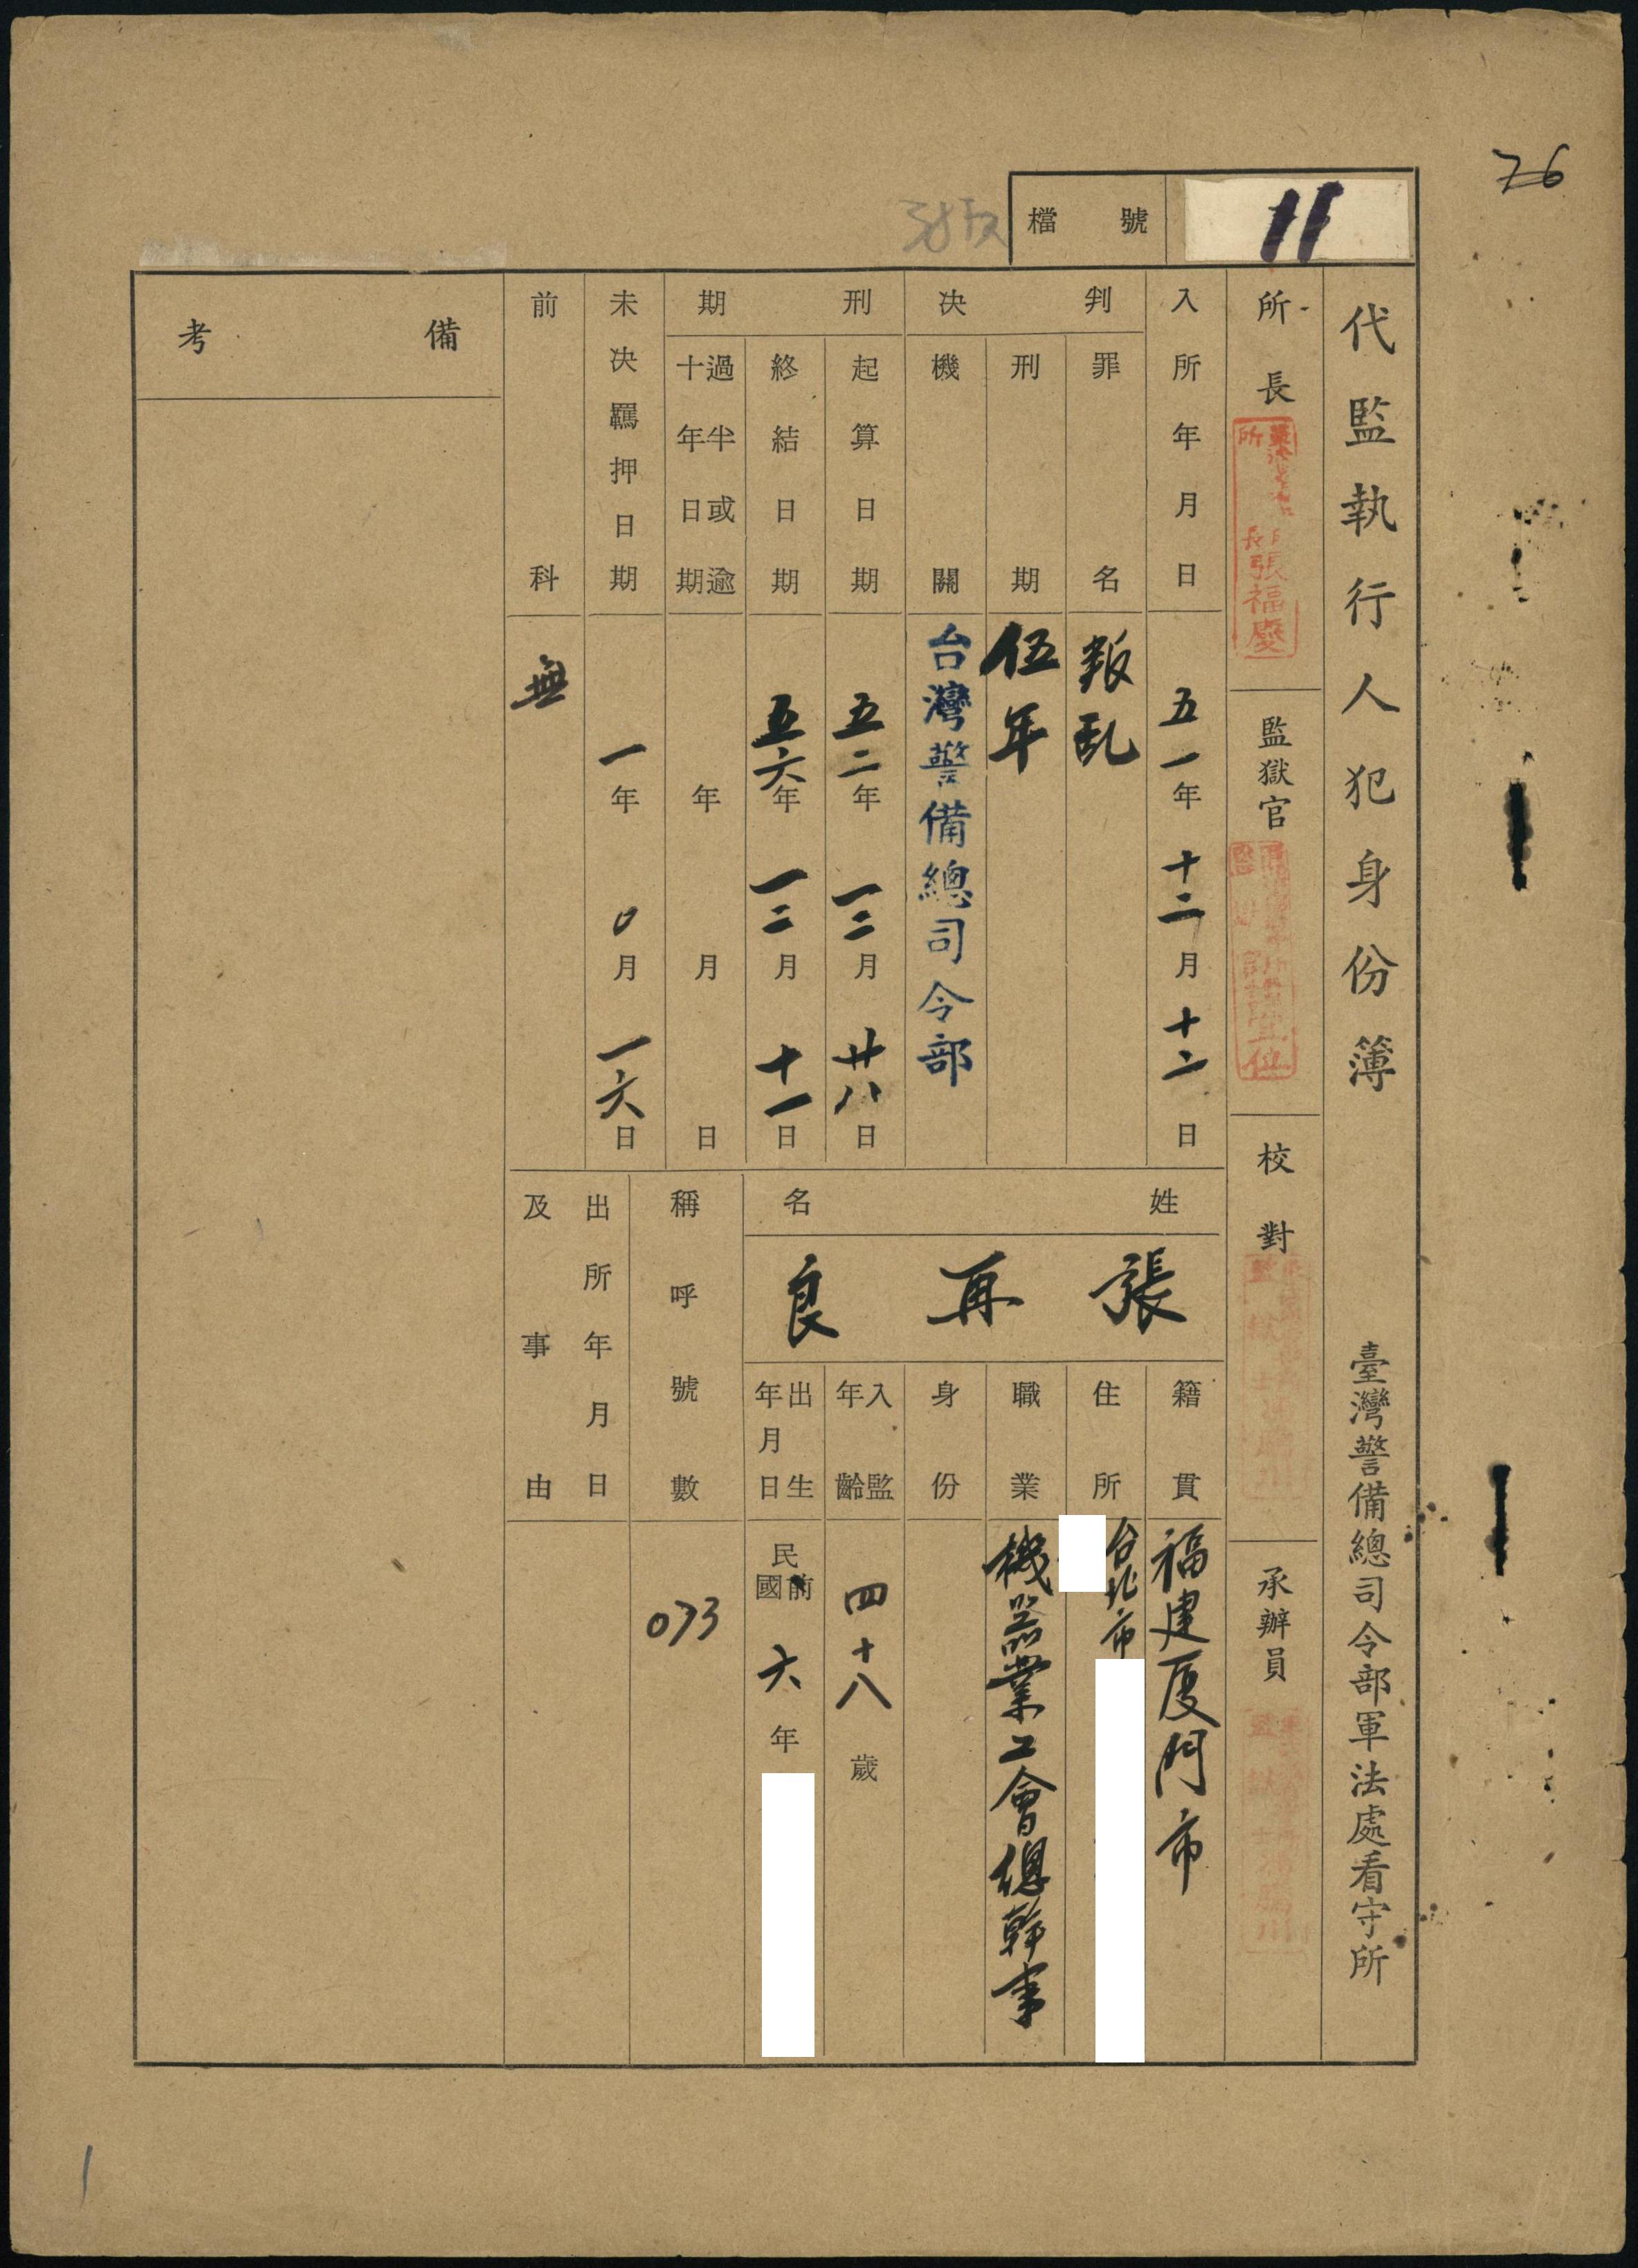 76
檔號 11
代監執行人犯身份簿 臺灣警備總司令部軍法處看守所
所長 張福慶
監獄官
校對
承辦員
入所年月日 五一年十二月十二日
判決
罪名 叛乱
刑期 伍年
機關 台灣警備總司令部
刑期
起算日期 五二年一二月廿八日
終結日期 五六年一二月十一日
過半或逾十年日期 年月日
未決羈押日期 一年0月一六日
前科 無
姓名
張再良
籍貫 福建厦門市
住所 台北市
職業 機器業工會總幹事
身份
入監年齡 四十八歲
出生年月日 民國前六年
稱呼號數 073
出所年月日及事由
備考